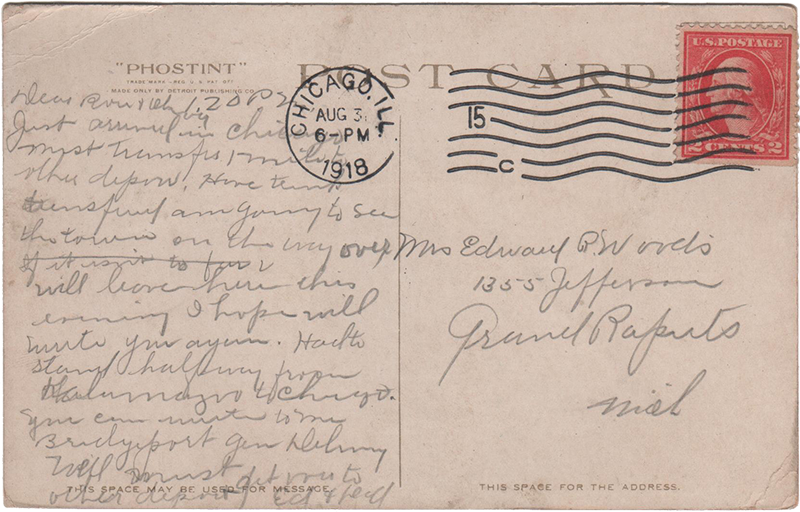 "PHOSTINT"
TRADE MARK - REG. U.S. PAT. OFF.
MADE ONLY BY DETROIT PUBLISHING CO.
POST CARD
U.S. POSTAGE
2 CENTS 2
CHICAGO, ILL.
AUG 3
6-PM
1918
15
C
Dear
Just arrived in Chicago
must transfer
other depow. Have
am going to see
the town on the way over
if it isnt to far
will leave here this
evening I hope will
write you again. Had to
stand halfway from
Kalamazoo to Chicgo.
you can write to me
Bridgeport Gen Delivery
Well must get over to
other depow Ed
Mrs Edward R Woods
1355 Jefferson
Grand Rapids
Mich
THIS SPACE MAY BE USED FOR MESSAGE.
THIS SPACE FOR THE ADDRESS.